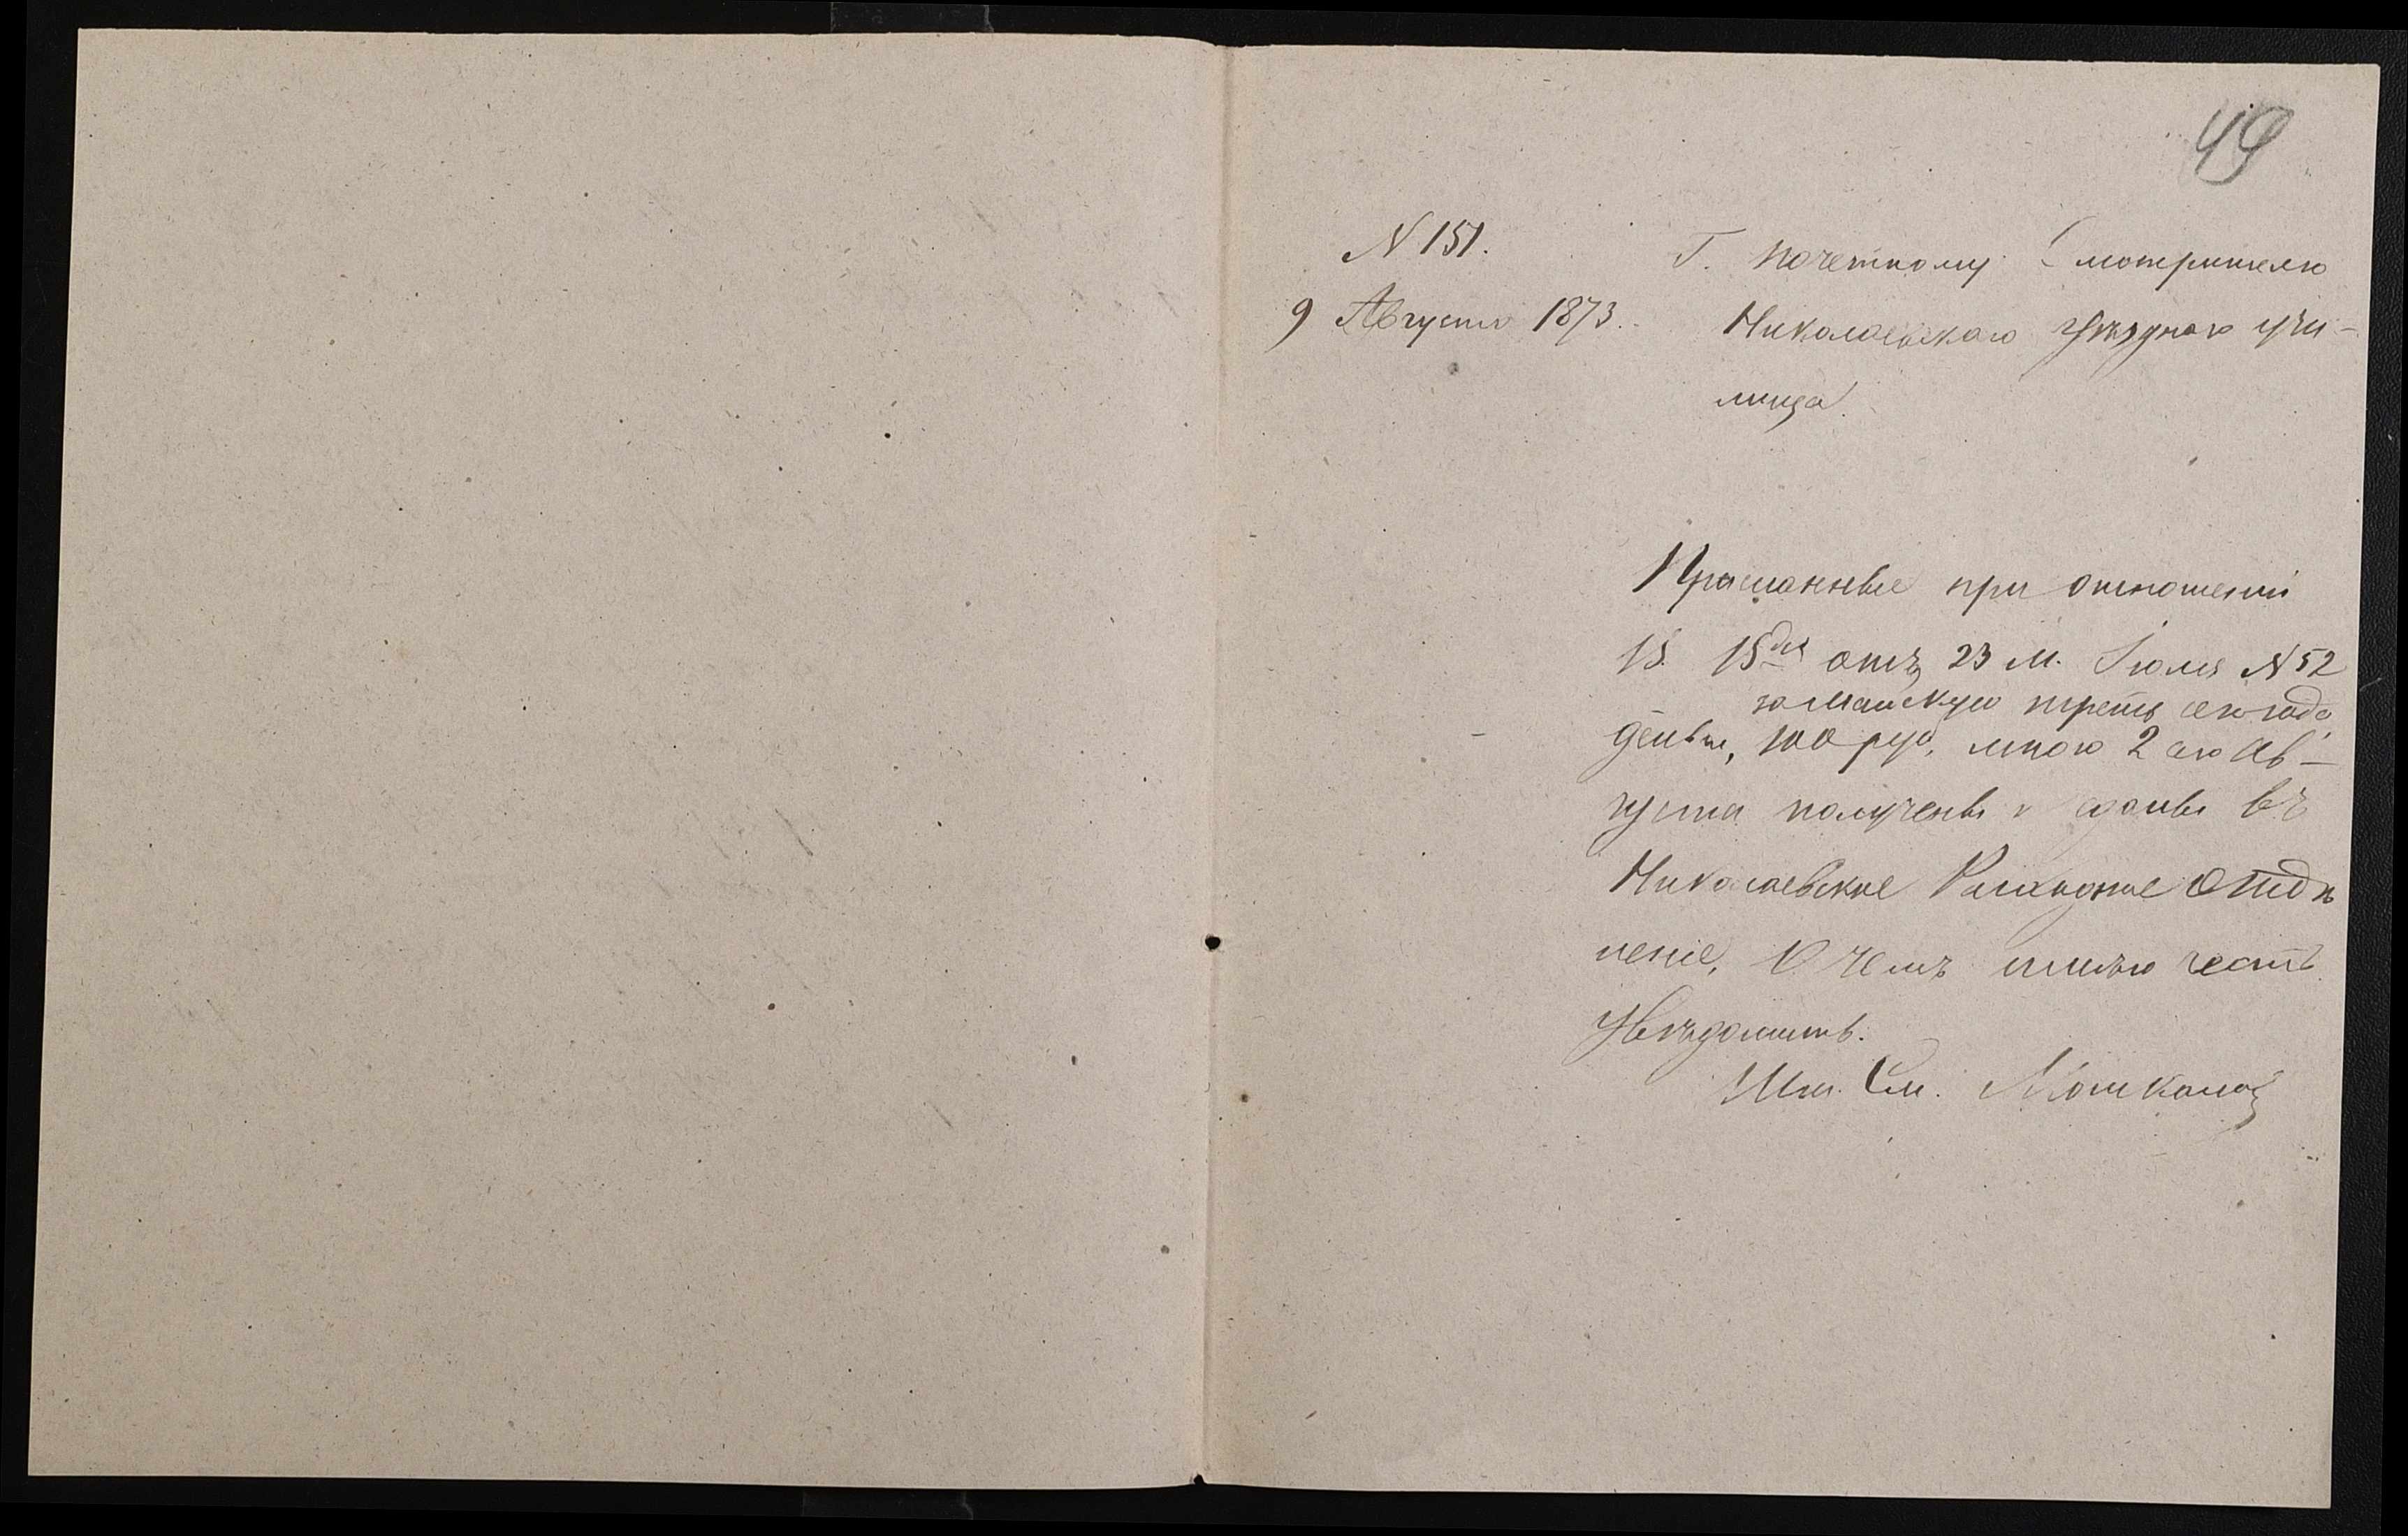 49
N 151.
9 Августа 1873.
Г. Почетному Смотрителю
Николаевскаго Уѣзднаго учи-
лища.
Присланныя при отношеніи
В. В<sup>дія</sup> отъ 23 м. Іюля N 52
за Майскую треть сего года
деньги, 100 руб, мною 2 сего Ав-
густа получены и сданы въ
Николаевское Казначейское Отдѣ
леніе, О чемъ имѣю честь
Увѣдомить.
Шт. См.